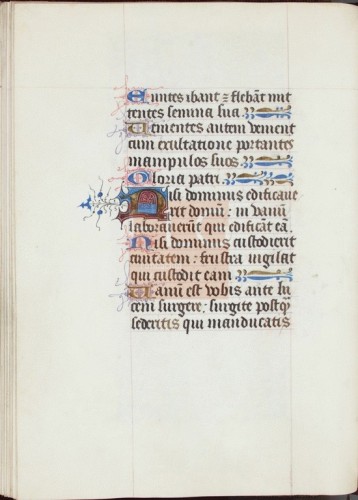 Euntes ibant ⁊ flebāt mit
tentes semina sua.
Uenientes autem venient
cum exultatione portantes
manipulos suos.
Gloria patri.
Nisi dominus edificaue
rit domū: in vanū
laborauerūt qui edificāt eā.
Nisi dominus custodierit
ciuitatem: frustra vigilat
qui custodit eam
Uanū est vobis ante lu
cem surgere: surgite postqͣ
sederitis qui manducatis